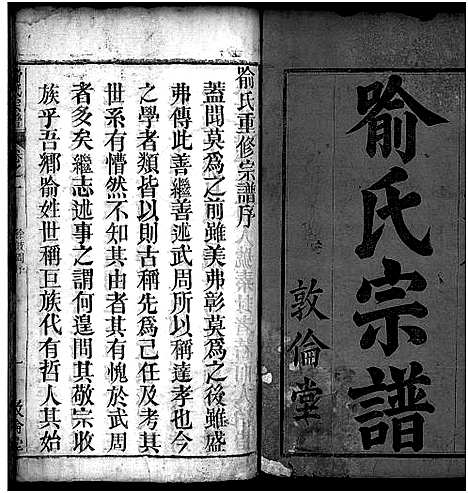 喻氏宗譜
敦倫堂
喻氏重修宗譜序
蓋聞莫為之前雖美弗彰莫為之後雖盛
弗傳此善繼善述武周所以稱達孝也今
之學者類皆以則古稱先為己任及考其
世系有懵然不知其由者其有愧於武周
者亥矣繼志述事之謂何遑問其敬宗收
族乎吾鄉喻姓世稱巨族代有哲人其始
敦倫堂